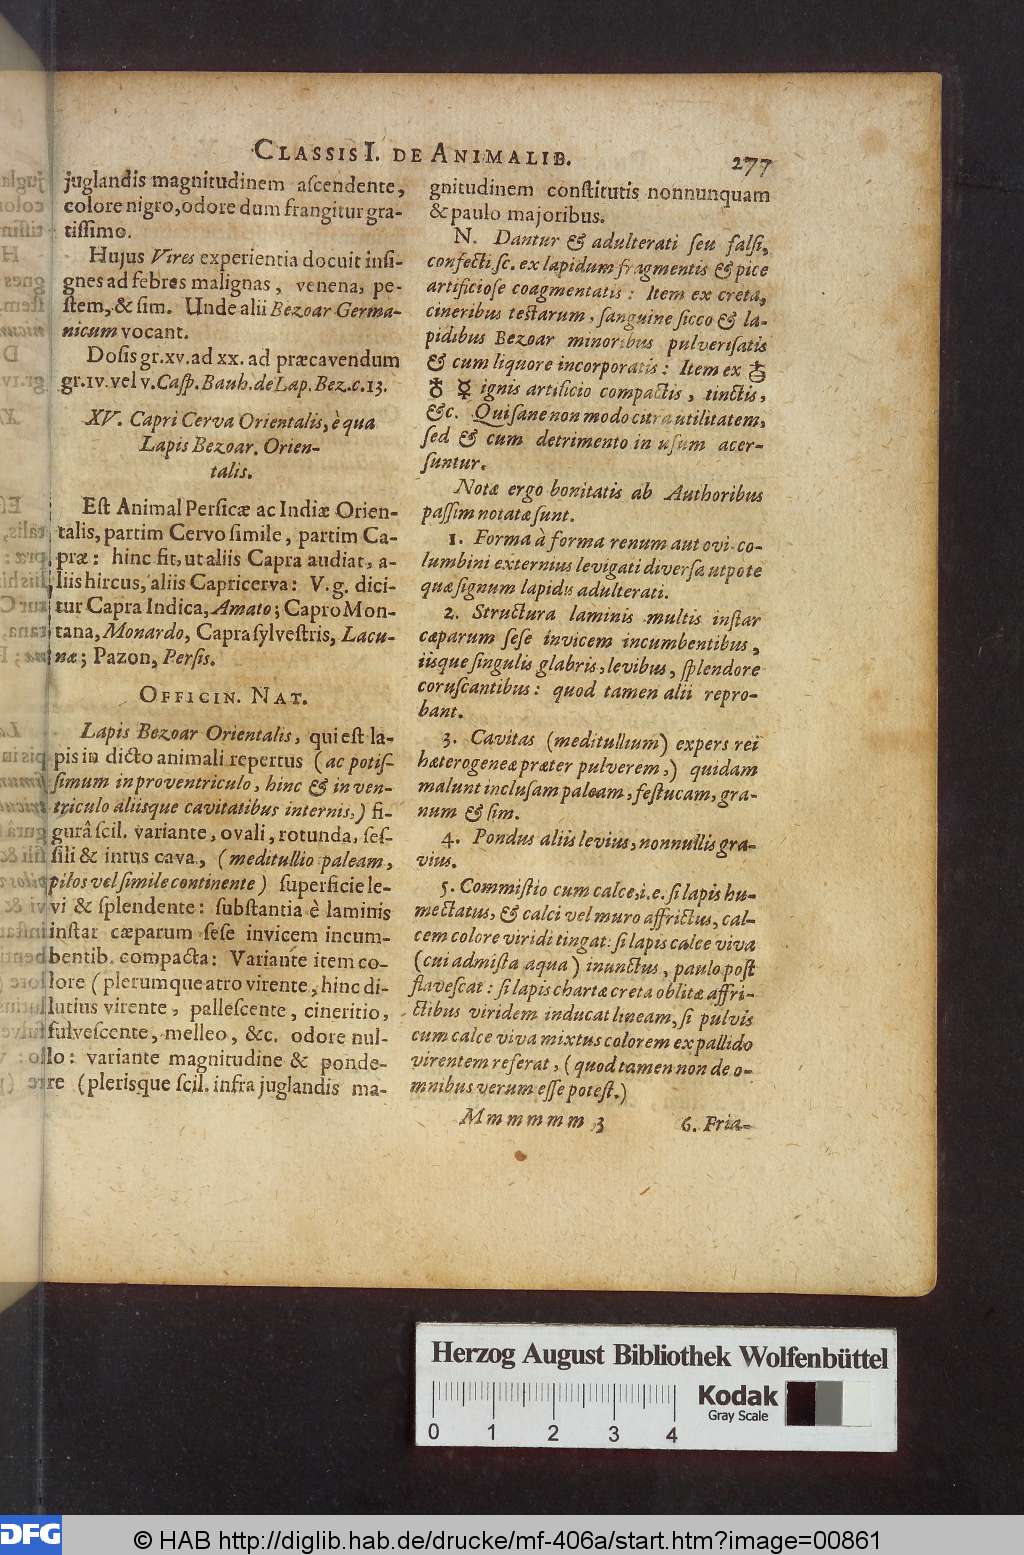 CLASSIS I. DE ANIMALIB. 277
juglandis magnitudinem ascendente,
colore nigro, odore dum frangitur gra-
tissimo.
Hujus Vires experientia docuit insi-
gnes ad febres malignas, venena, pe-
stem, & sim. Unde alii Bezoar Germa-
nicum vocant.
Dosis gr. xv. ad xx. ad præcavendum
gr. iv. vel v. Casp. Bauh. de Lap. Bez. c. 13.
XV. Capri Cerva Orientalis, è qua
Lapis Bezoar. Orien-
talis.
Est Animal Persicæ ac Indiæ Orien-
talis, partim Cervo simile, partim Ca-
præ: hinc fit, ut aliis Capra audiat, a-
liis hircus, aliis Capricerva: V. g. dici-
tur Capra Indica, Amato; Capro Mon-
tana, Monardo, Capra sylvestris, Lacu-
næ; Pazon, Persis.
OFFICIN. NAT.
Lapis Bezoar Orientalis, qui est la-
pis in dicto animali repertus (ac potis-
simum in proventriculo, hinc & in ven-
triculo aliisque cavitatibus internis,) fi-
gurâ scil. variante, ovali, rotunda, ses-
sili & intus cava, (meditullio paleam,
pilos vel simile continente) superficie le-
vi & splendente: substantia è laminis
instar cæparum sese invicem incum-
bentib. compacta: Variante item co-
lore (plerumque atro virente, hinc di-
lutius virente, pallescente, cineritio,
fulvescente, melleo, &c. odore nul-
lo: variante magnitudine & ponde-
re (plerisque scil. infra juglandis ma-
gnitudinem constitutis nonnunquam
& paulo majoribus.
N. Dantur & adulterati seu falsi,
confecti sc. ex lapidum fragmentis & pice
artificiose coagmentatis: Item ex creta,
cineribus testarum, sanguine sicco & la-
pidibus Bezoar minoribus pulverisatis
& cum liquore incorporatis: Item ex
♁ ☿ ignis artificio compactis, tinctis,
&c. Qui sane non modo citra utilitatem,
sed & cum detrimento in usum acer-
suntur.
Notæ ergo bonitatis ab Authoribus
passim notatæ sunt.
1. Forma à forma renum aut ovi co-
lumbini externius levigati diversa utpote
quæ signum lapidis adulterati.
2. Structura laminis multis instar
cæparum sese invicem incumbentibus,
iisque singulis glabris, levibus, splendore
coruscantibus: quod tamen alii repro-
bant.
3. Cavitas (meditullium) expers rei
hæterogeneæ præter pulverem,) quidam
malunt inclusam paleam, festucam, gra-
num & sim.
4. Pondus aliis levius, nonnullis gra-
vius.
5. Commistio cum calce, i. e. si lapis hu-
mectatus, & calci vel muro affrictus, cal-
cem colore viridi tingat: si lapis calce viva
(cui admista aqua) inunctus, paulo post
flavescat: si lapis chartæ creta oblitæ affri-
ctibus viridem inducat lineam, si pulvis
cum calce viva mixtus colorem ex pallido
virentem referat, (quod tamen non de o-
mnibus verum esse potest.)
Mmmmmm 3 6. Fria-
Herzog August Bibliothek Wolfenbüttel
Kodak
Gray Scale
0 1 2 3 4
DFG © HAB http://diglib.hab.de/drucke/mf-406a/start.htm?image=00861